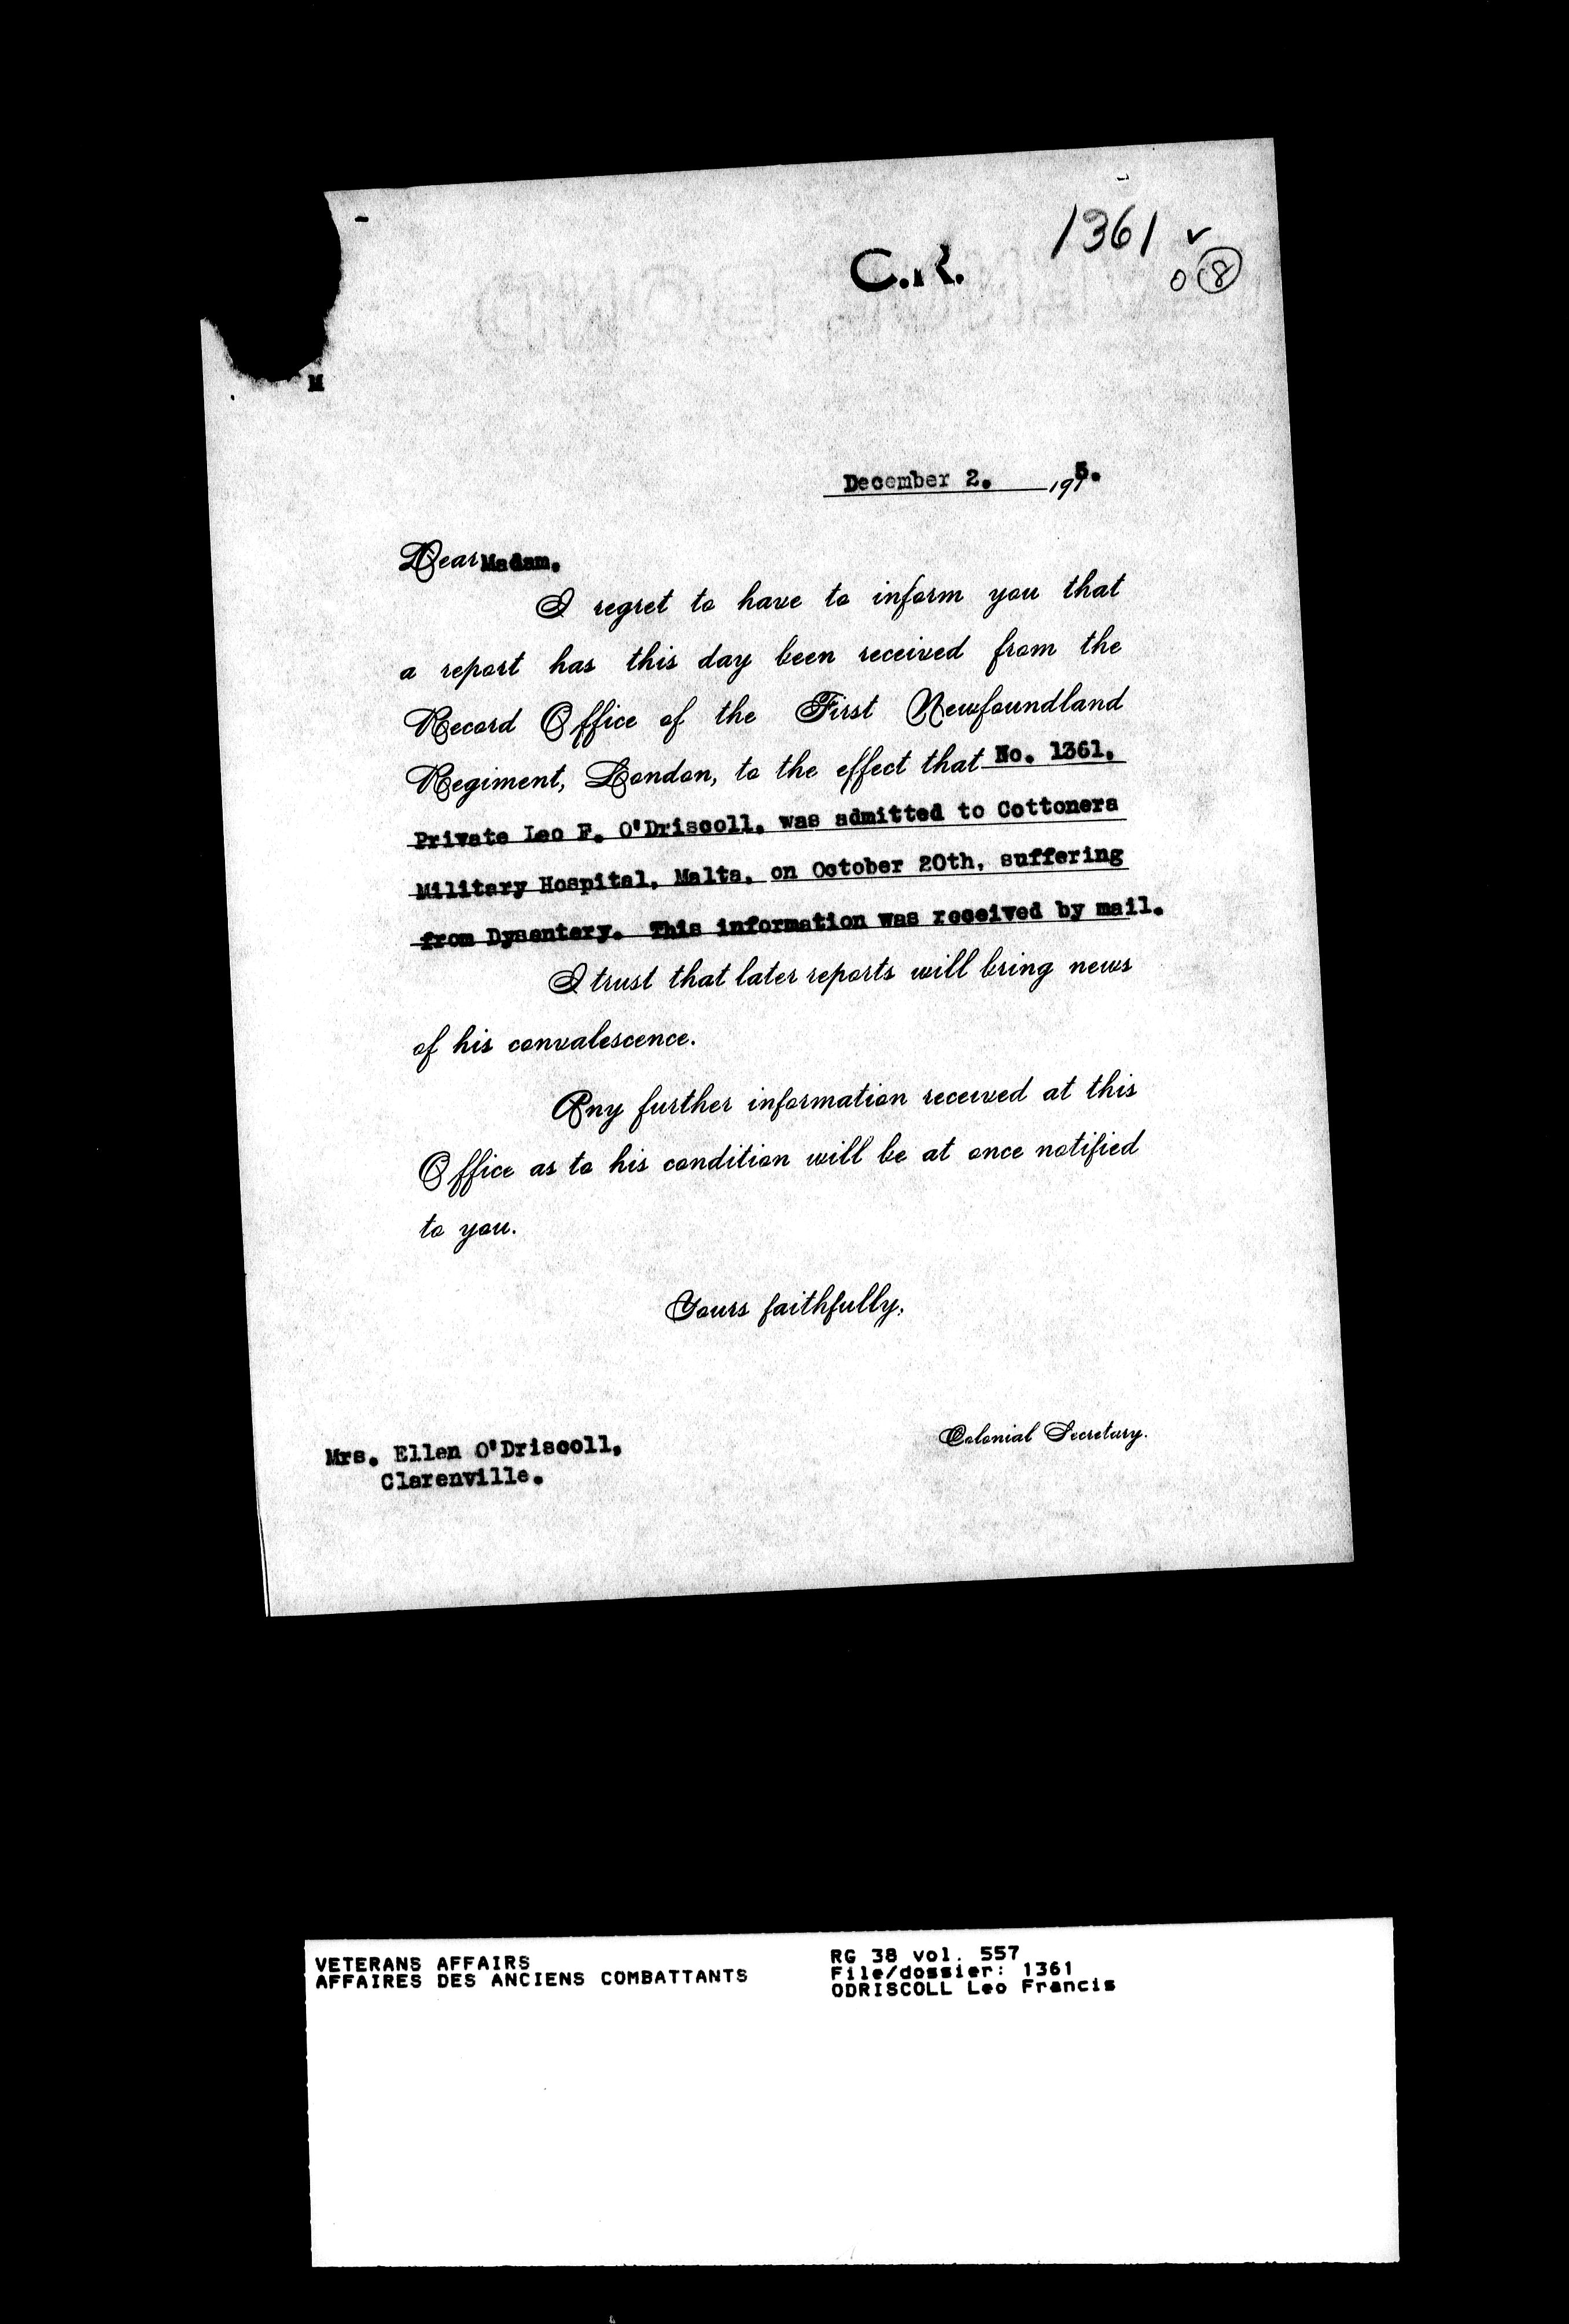 1361 ✓
C.R.
0 8
M
December 2. 1915.
Dear Madam.
I regret to have to inform you that
a report has this day been received from the
Record Office of the First Newfoundland
Regiment, London, to the effect that No. 1361,
Private Leo F. O'Driscoll, was admitted to Cottonera
Military Hospital, Malta, on October 20th, suffering
from Dysentery. This information was received by mail.
I trust that later reports will bring news
of his convalescence.
Any further information received at this
Office as to his condition will be at once notified
to you.
Yours faithfully,
Colonial Secretary.
Mrs. Ellen O'Driscoll,
Clarenville.
VETERANS AFFAIRS
AFFAIRES DES ANCIENS COMBATTANTS
RG 38 vol. 557
File/dossier: 1361
ODRISCOLL Leo Francis